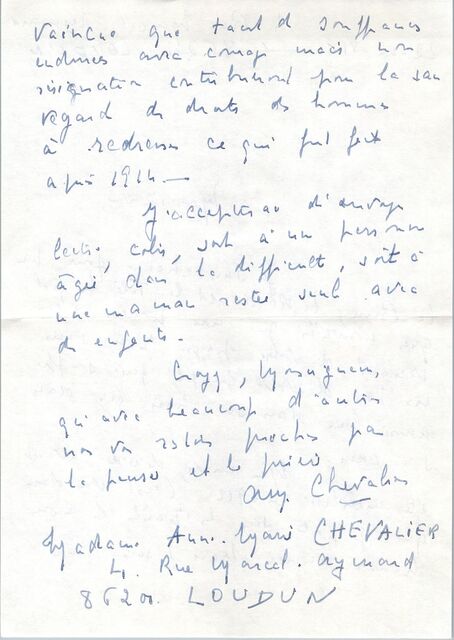 vaincue que tant de souffrances
endurées avec courage mais non
résignation contribueront pour la
regard des droits des hommes
à redresser ce qui fut fait
après 1914.—
J'accepterai d'envoyer
lettre, colis, soit à une personne
âgée, dans la difficulté, soit à
une maman restée seule avec
des enfants.
Croyez, Monsieur,
qu'avec beaucoup d'autres
nous vous restons proches par
la pensée et la prière
Chevalier
Madame Anne-Marie CHEVALIER
4, Rue Marcel Aymard
86200. LOUDUN